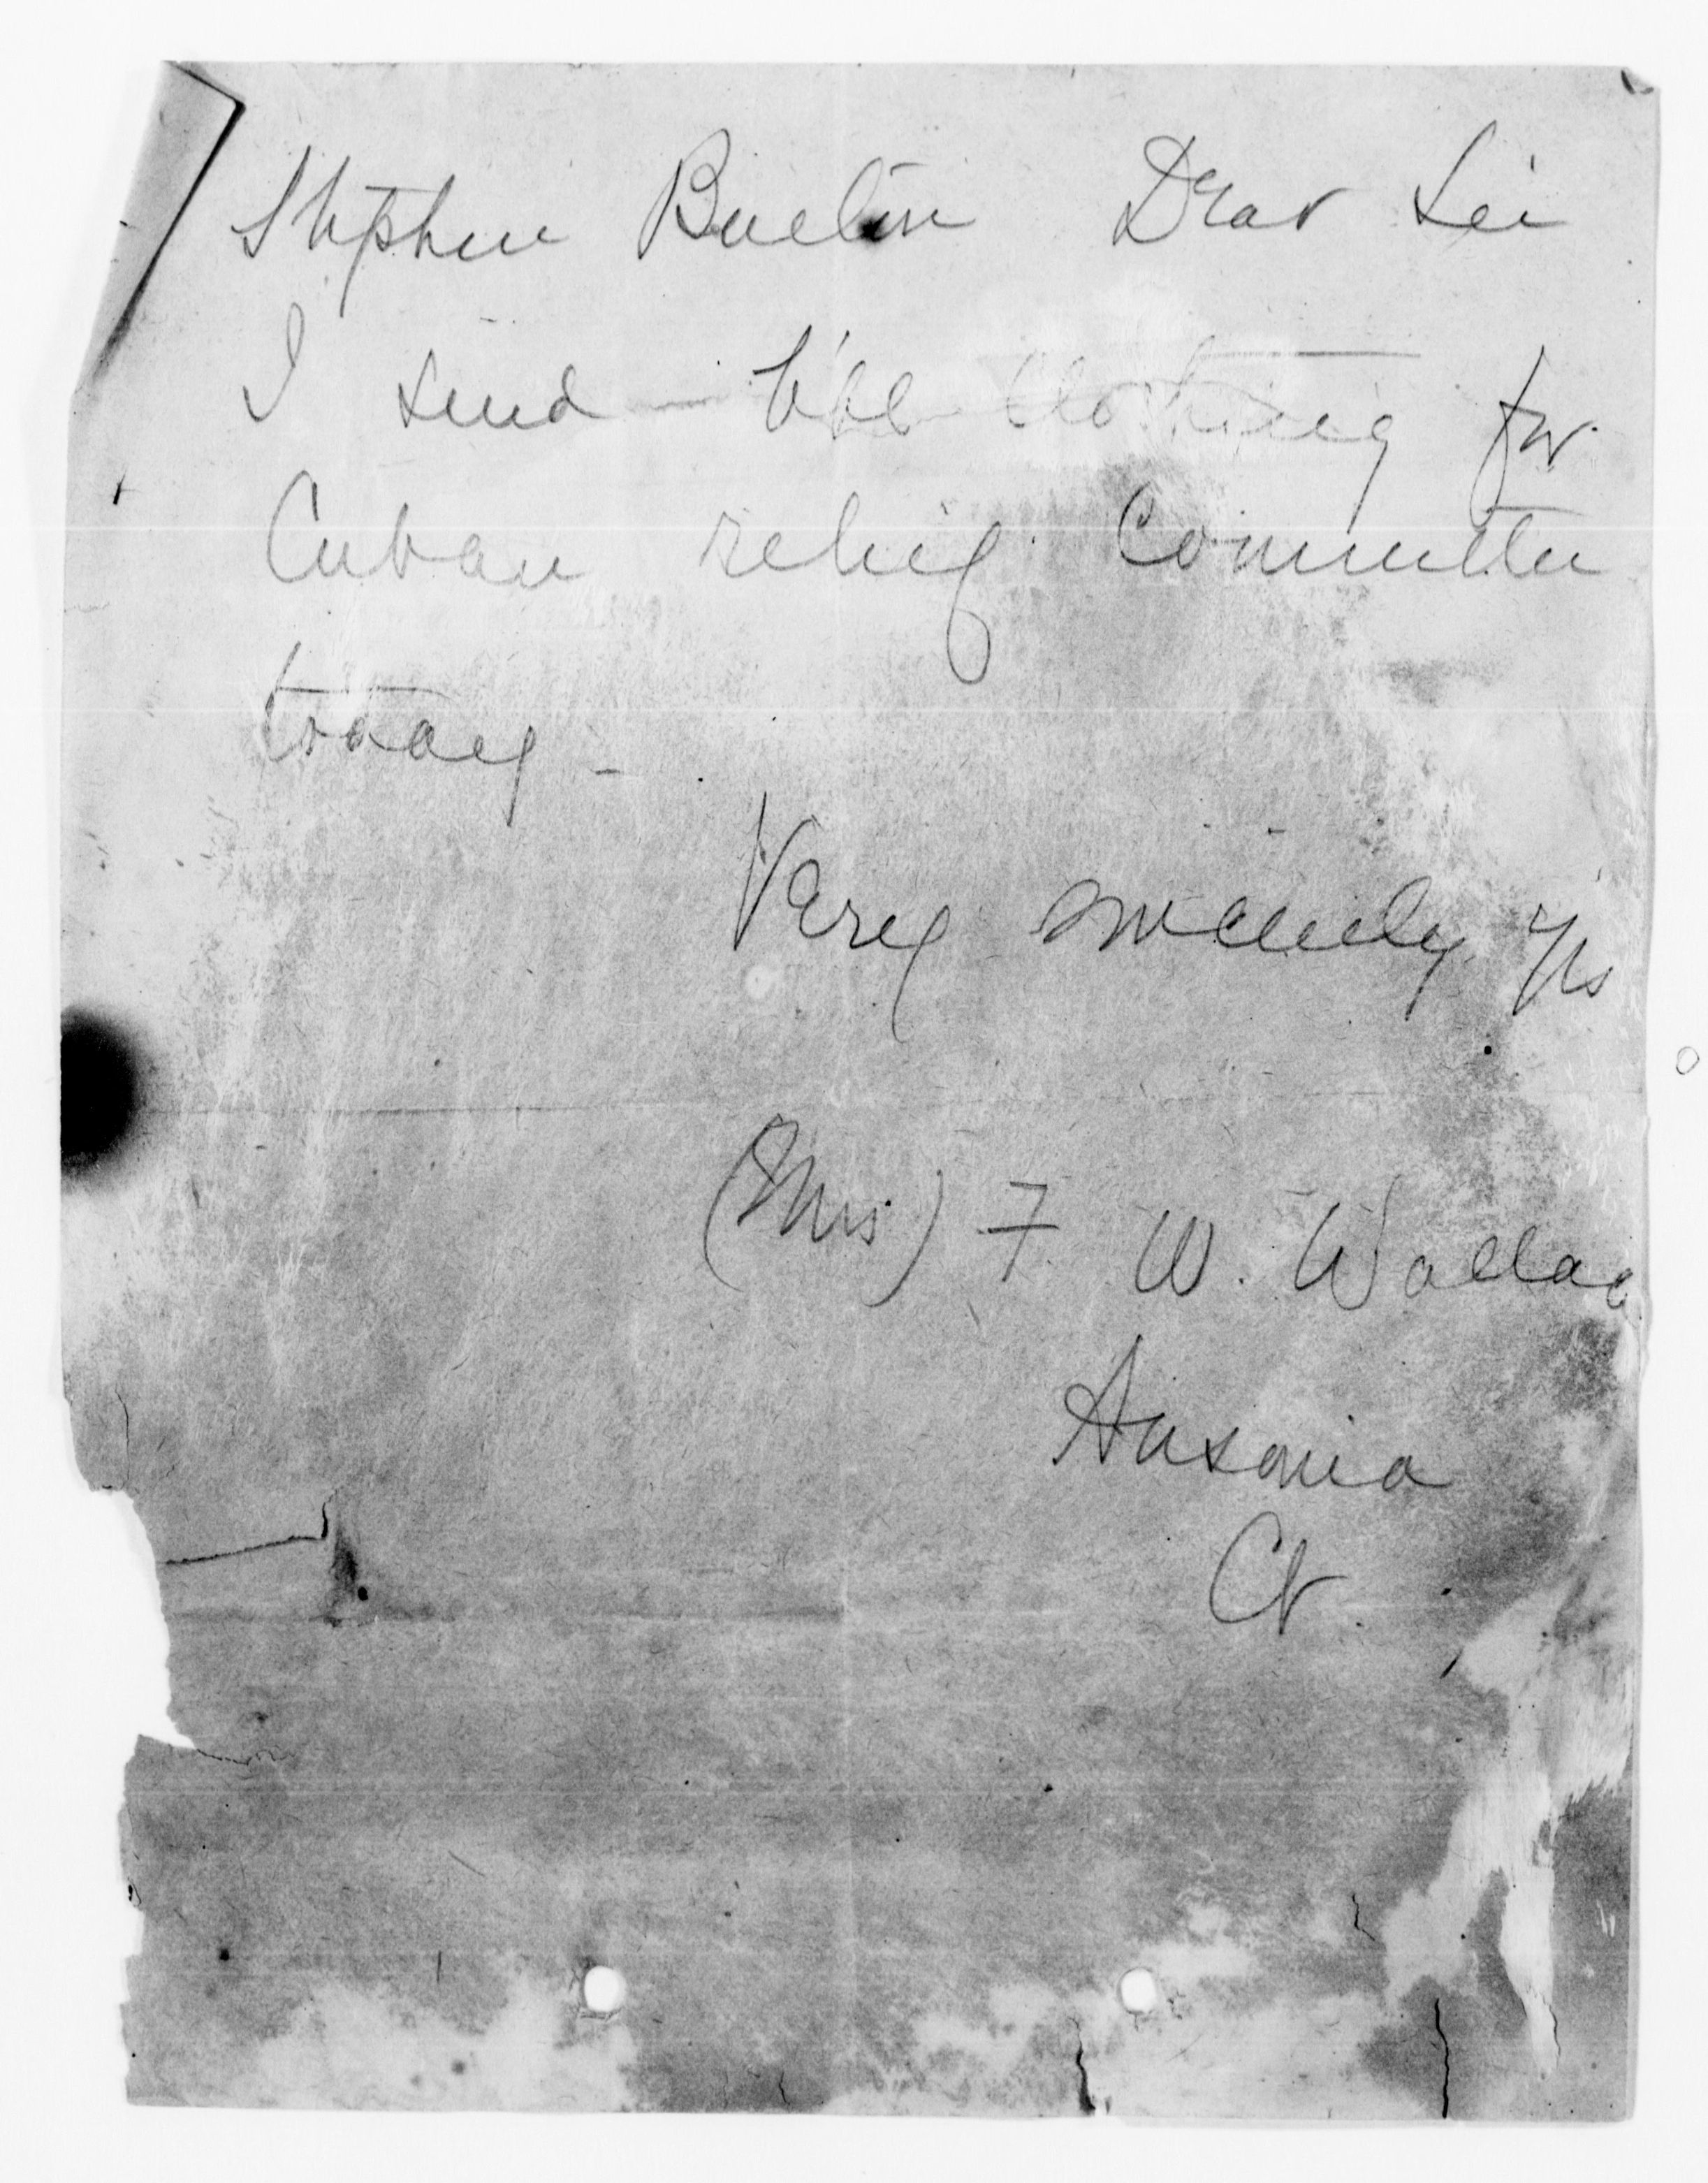 Stephen Barton Dear Sir
I send bbl clothing for
Cuban relief Committee
today -
Very sincerely Yrs
(Mrs) F. W. Wallace
Ansonia
Ct.